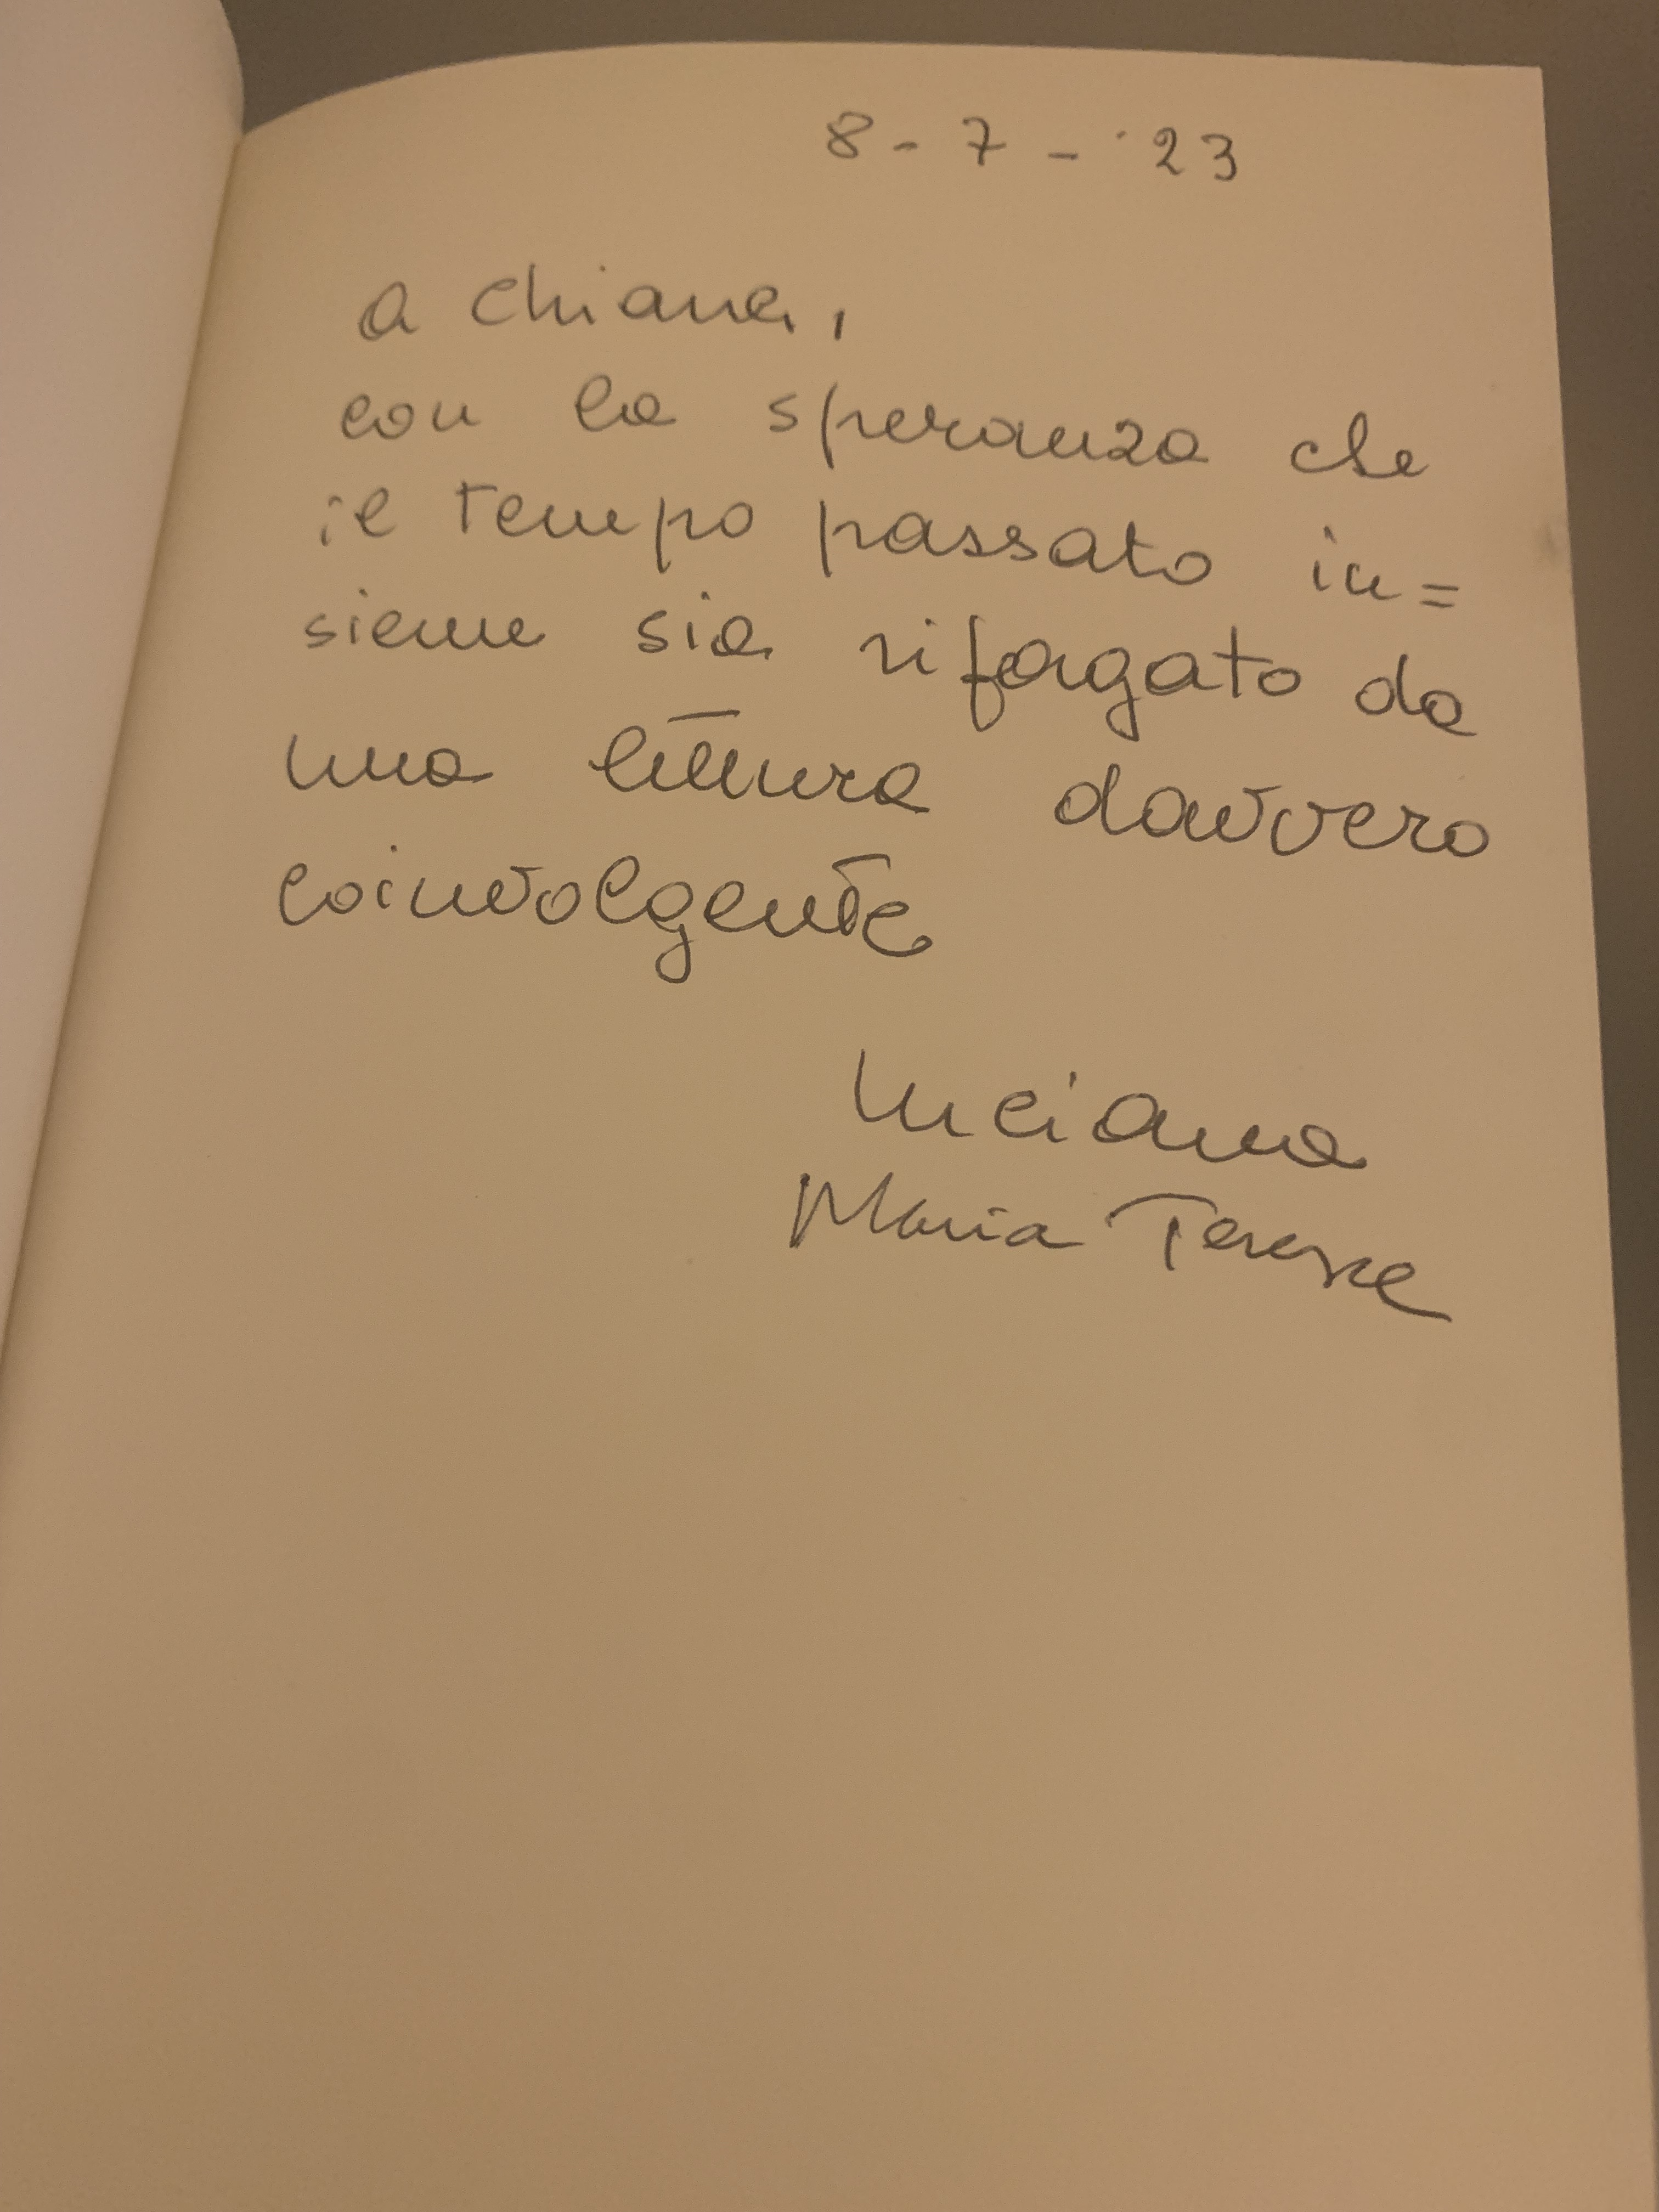 8-7-'23
a Chiara,
con la speranza che
il tempo passato in=
sieme sia ripagato da
una lettura davvero
coinvolgente
Luciana
Maria Teresa